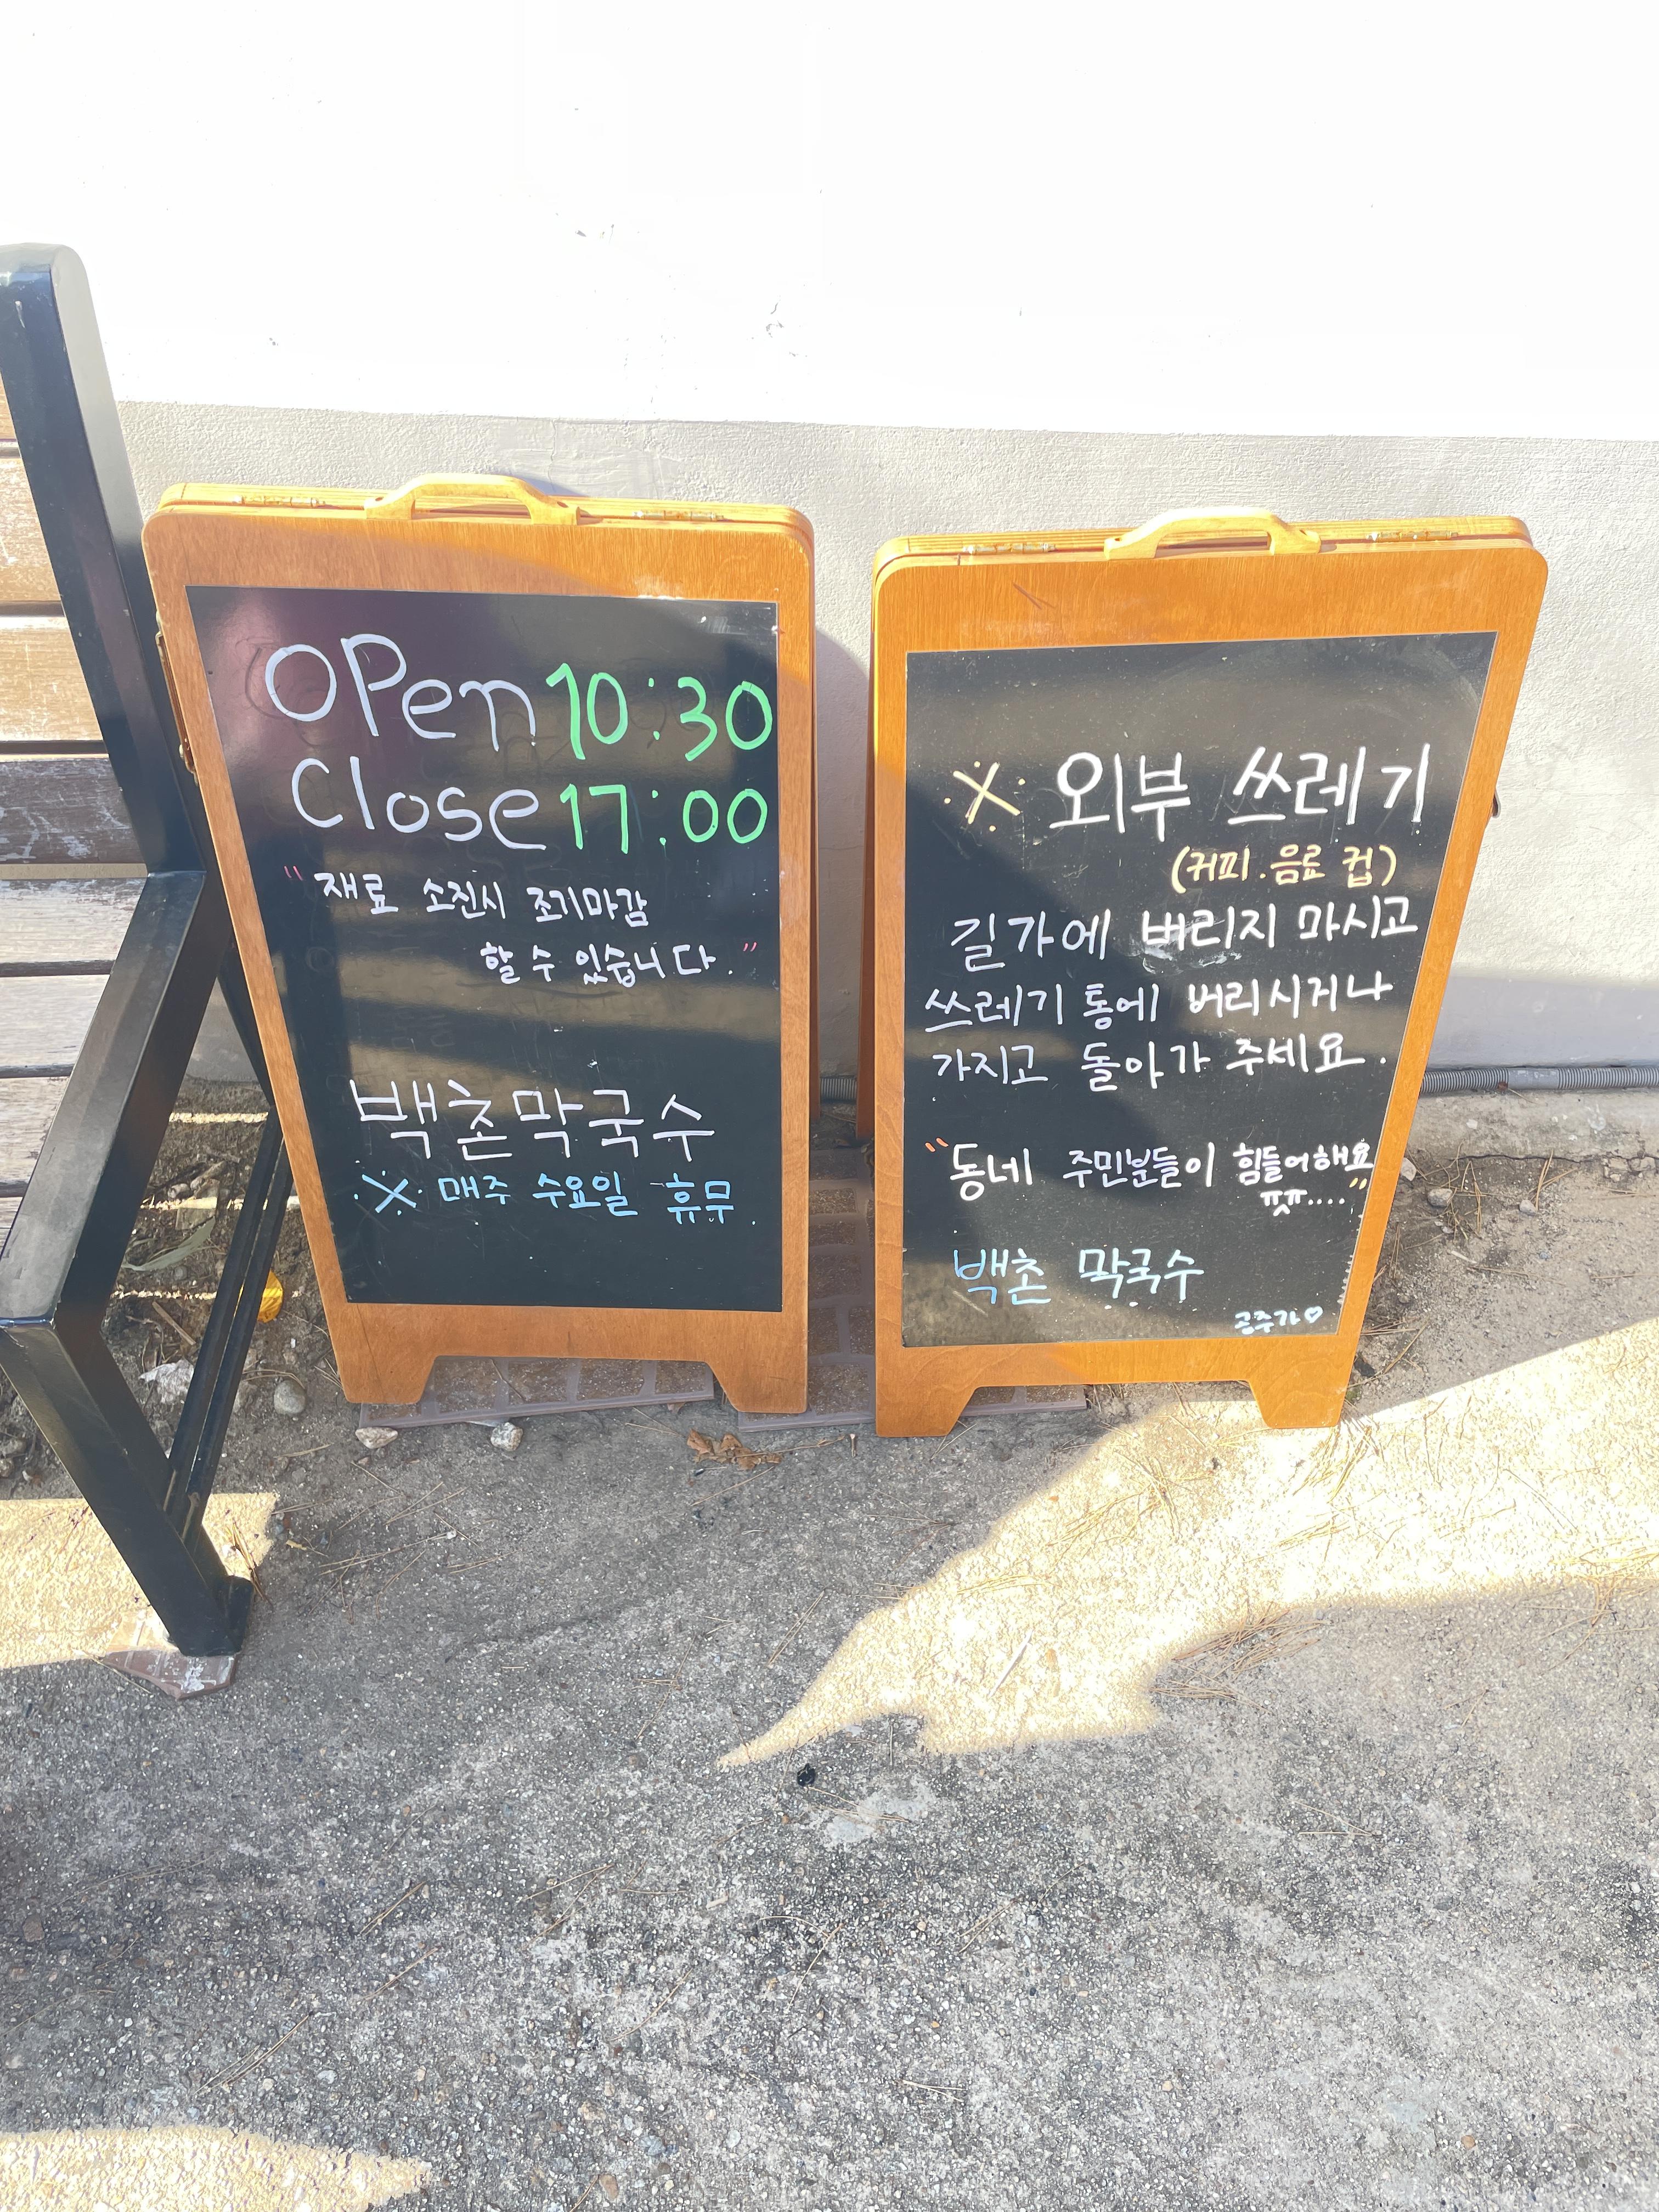 OPen 10:30
Close 17:00
"재료 소진시 조기마감
할 수 있습니다."
백촌막국수
※ 매주 수요일 휴무.
※ 외부 쓰레기
(커피.음료 컵)
길가에 버리지 마시고
쓰레기 통에 버리시거나
가지고 돌아가 주세요.
"동네 주민분들이 힘들어해요
ㅠㅅㅠ...."
백촌 막국수
공주가♡